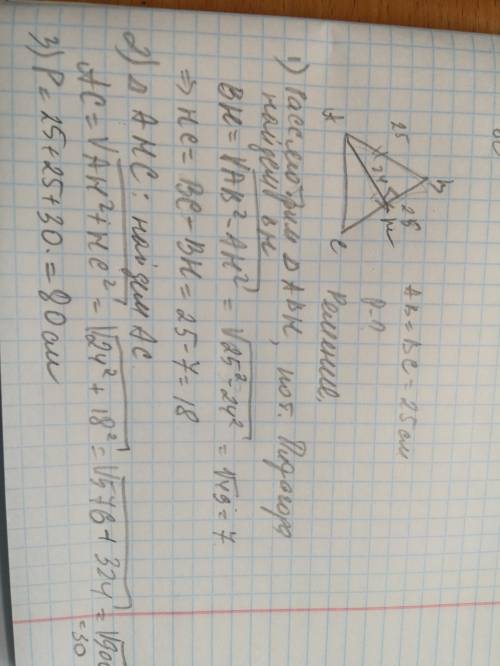 AB = BC = 25 см
P - ?
B
25
25
24
H
A
C
Решение.
1) Рассмотрим △ ABH, по т. Пифагора
найдем BH
BH = √AB² - AH² = √25² - 24² = √49 = 7
⇒ HC = BC - BH = 25 - 7 = 18
2) △ AHC: найдем AC
AC = √AH² + HC² = √24² + 18² = √576 + 324 = √900
= 30
3) P = 25 + 25 + 30 = 80 см